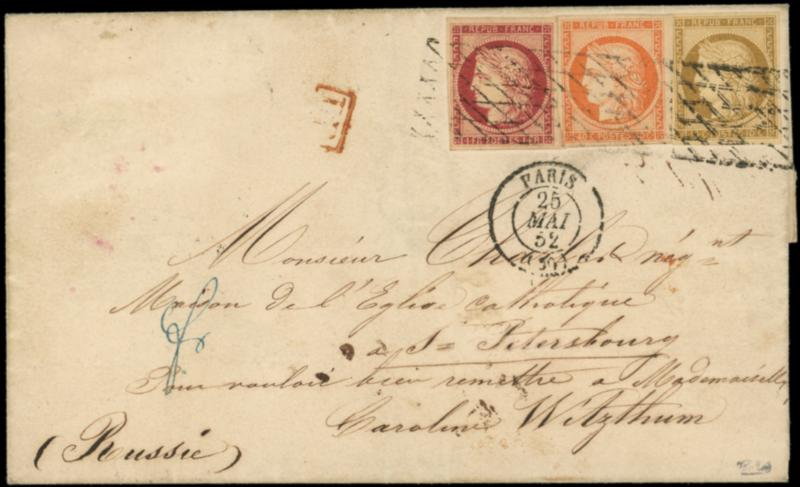 REPUB. FRANC.
1.FR.POSTES 1.FR
REPUB. FRANC.
40.C.POSTES
REPUB. FRANC.
10.C
PARIS
25
MAI
52
Monsieur négnt
Maison de l'Eglise catholique
a St Petersbourg
Pour vouloir bien remettre a Mademoiselle
Caroline Witzthum
(Russie)